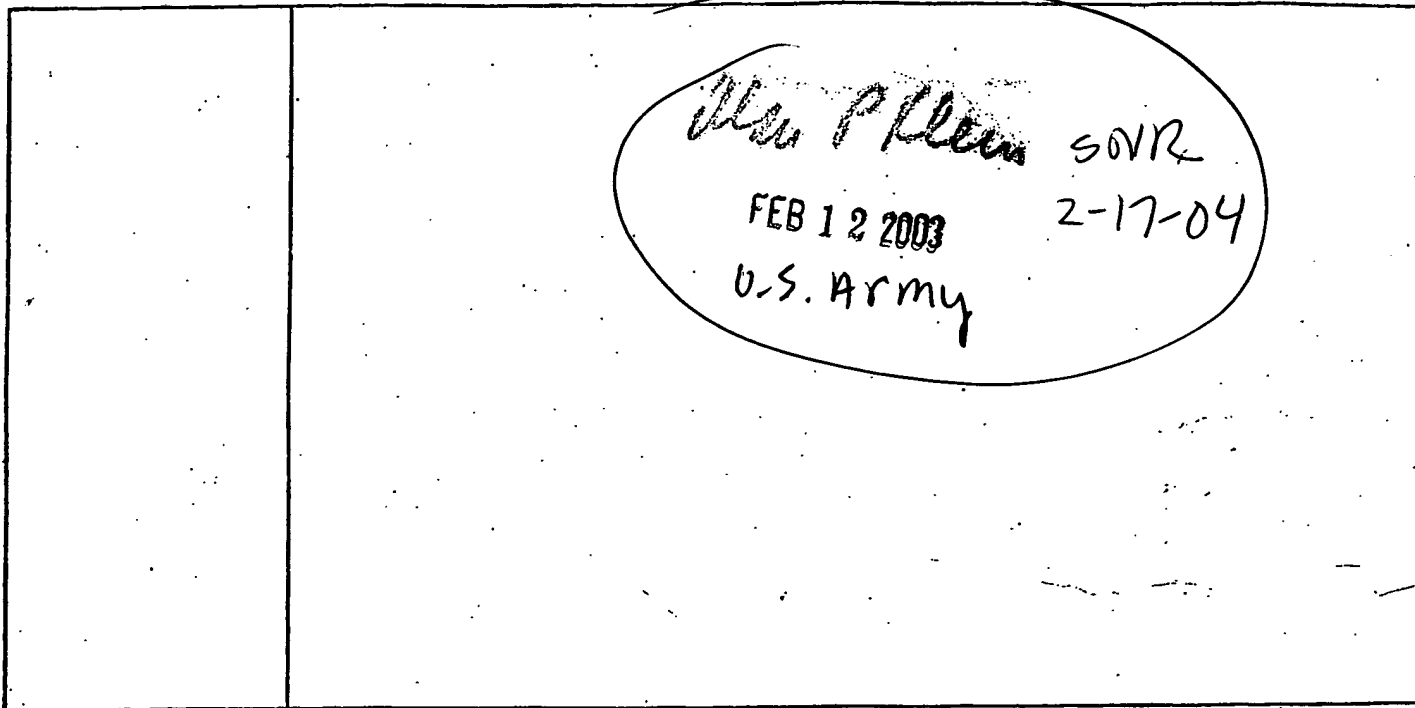 P Klein SOVR
FEB 1 2 2003 2-17-04
U.S. Army